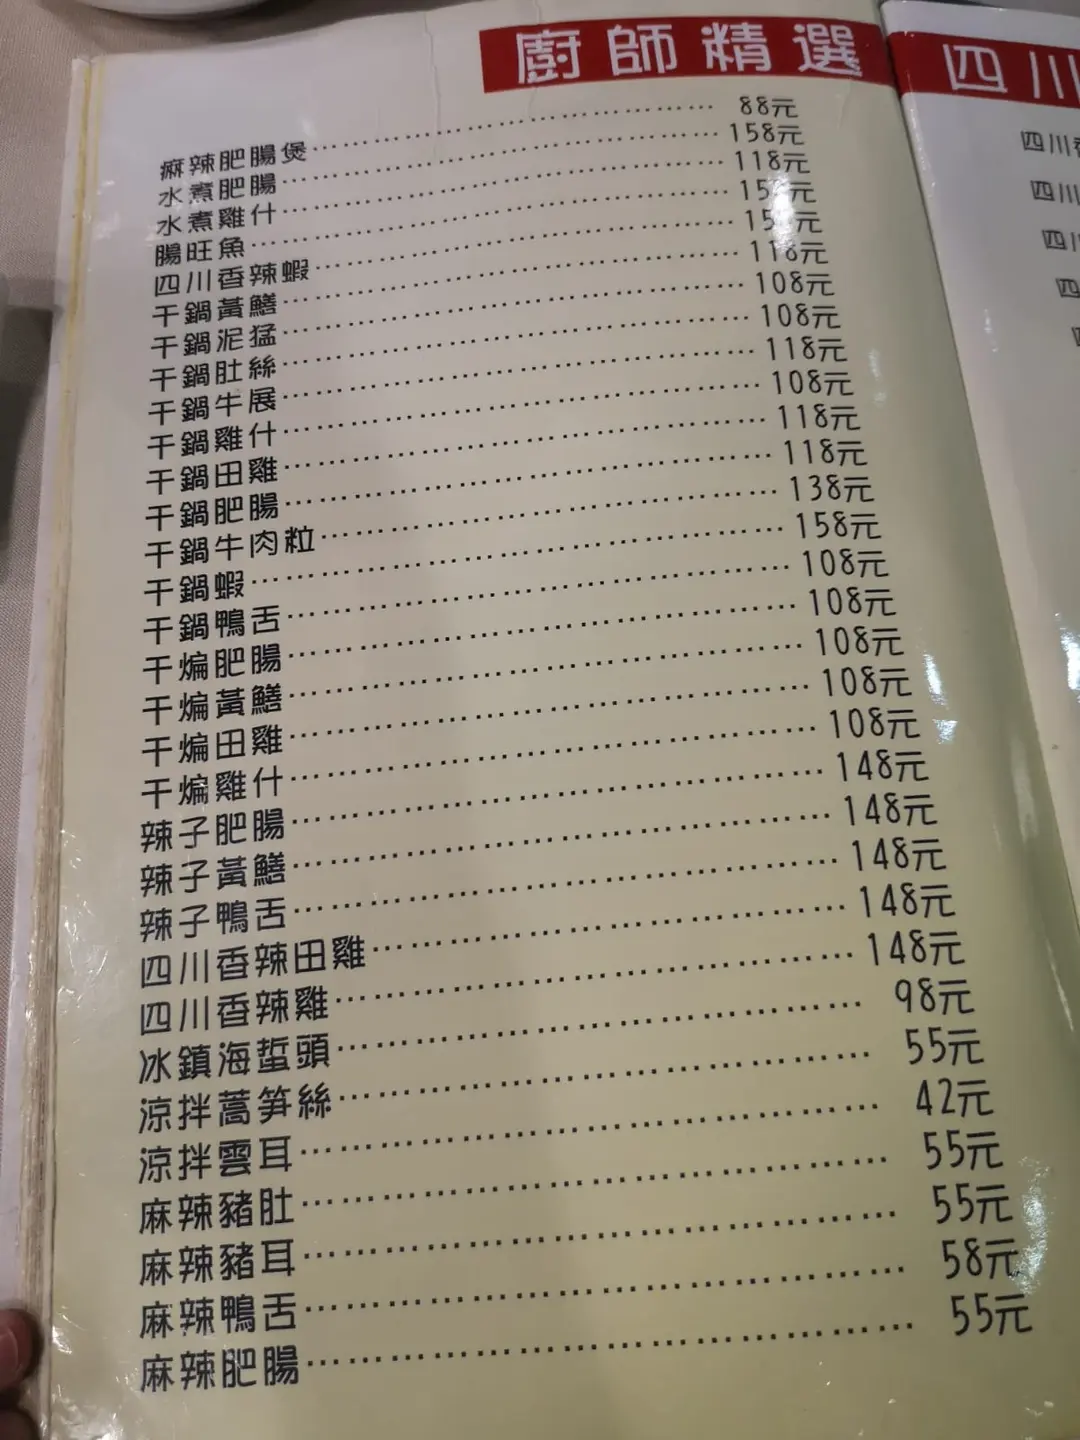 廚師精選
痲辣肥腸煲 88元
水煮肥腸 158元
水煮雞什 118元
腸旺魚
四川香辣蝦
干鍋黃鱔 118元
干鍋泥猛 108元
干鍋肚絲 108元
干鍋牛展 118元
干鍋雞什 108元
干鍋田雞 118元
干鍋肥腸 118元
干鍋牛肉粒 138元
干鍋蝦 158元
干鍋鴨舌 108元
干煸肥腸 108元
干煸黃鱔 108元
干煸田雞 108元
干煸雞什 108元
辣子肥腸 148元
辣子黃鱔 148元
辣子鴨舌 148元
四川香辣田雞 148元
四川香辣雞 148元
冰鎮海蜇頭 98元
涼拌蒿笋絲 55元
涼拌雲耳 42元
麻辣豬肚 55元
麻辣豬耳 55元
麻辣鴨舌 58元
麻辣肥腸 55元
四川
四川香
四川
四川
四